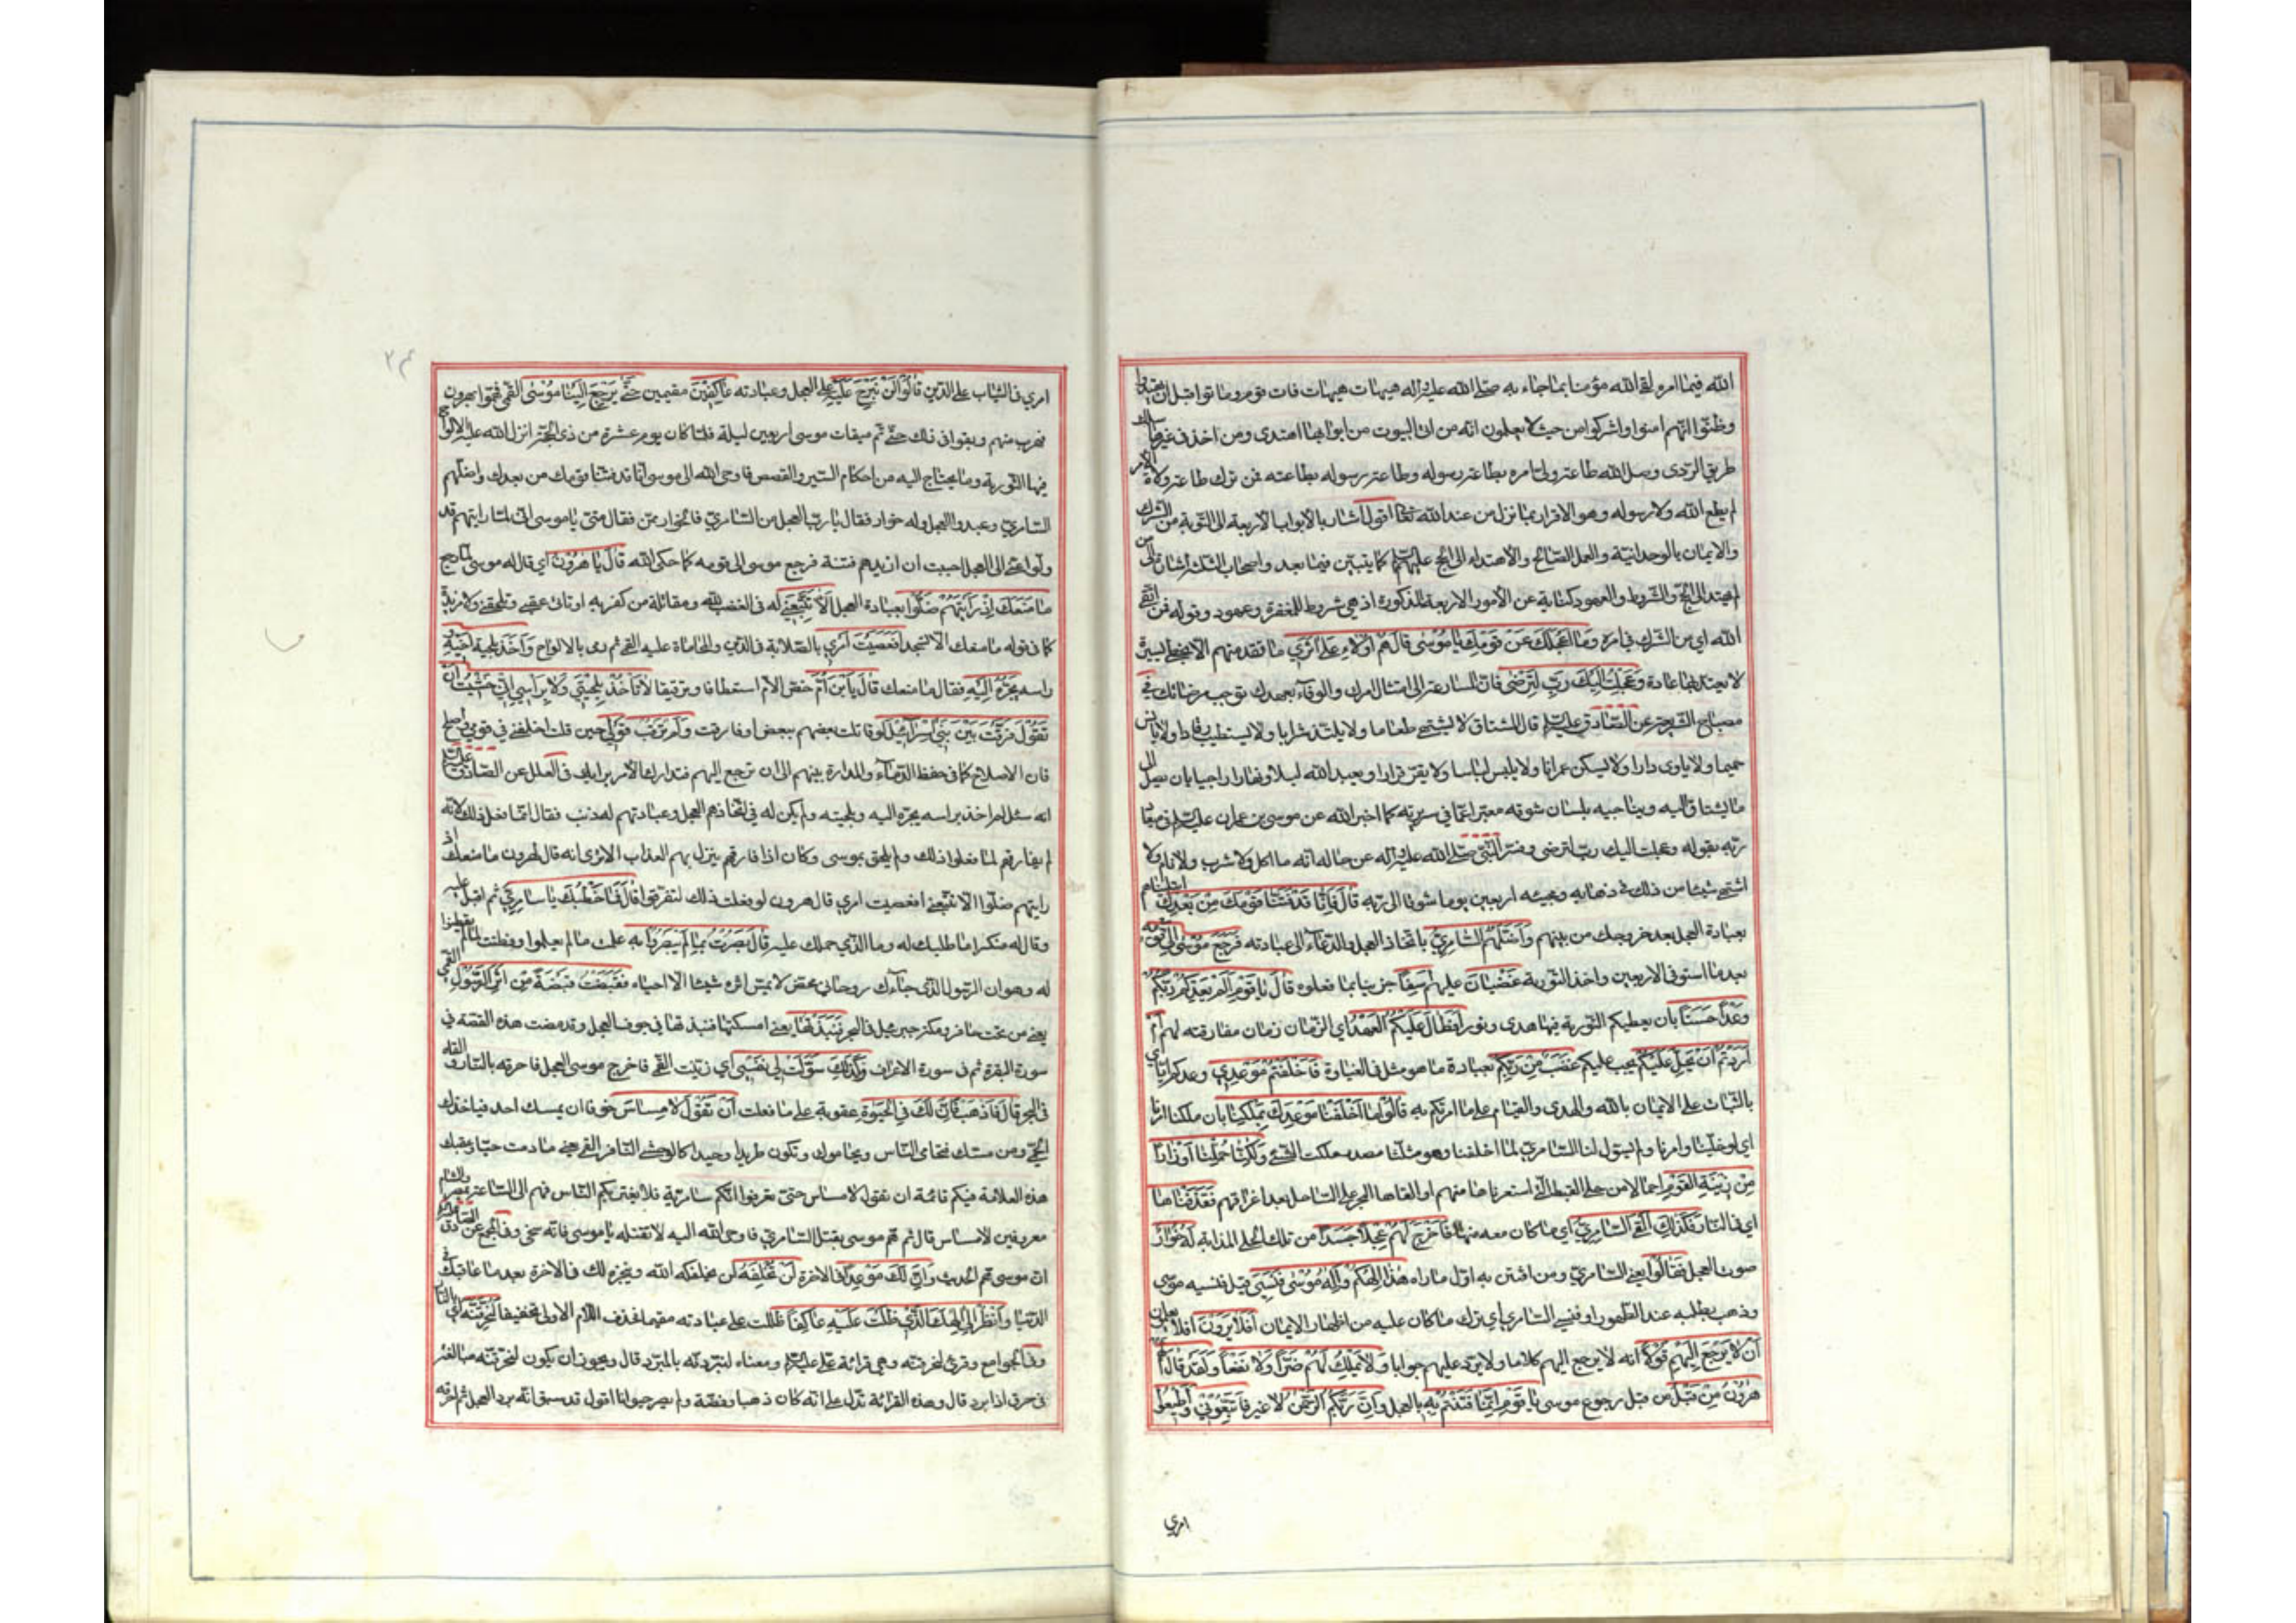 الله فيما امره لقى الله مؤمنا بما جاء به صلى الله عليه وآله هيهات هيهات فات قوم وماتوا قبل ان يهتدوا
وظنوا انهم امنوا واشركوا من حيث لا يعلمون انه من اتى البيوت من ابوابها اهتدى ومن اخذ في غيرها سلك
طريق الردى وصل الله طاعة ولى امره بطاعة رسوله وطاعة رسوله بطاعته فمن ترك طاعة ولاة الامر
لم يطع الله ولا رسوله وهو الاقرار بما نزل من عند الله تعالى اقول اشار بالابواب الاربعة الى التوبة من الشرك
والايمان بالوحدانية والعمل الصالح والاهتداء الى الحجج عليهم السلم كما يتبين فيما بعد واصحاب الثلث اشارة الى من
لم يهتد الى الحجج والشروط والعهود كناية عن الامور الاربعة المذكورة اذ هي شروط للمغفرة وعهود وقوله فمن اتقى
الله اي من الشرك في امره وَمَا اَعْجَلَكَ عَنْ قَوْمِكَ يَا مُوسٰى قَالَ هُمْ اُولاءِ عَلٰى اَثَرِي ما تقدمتهم الا بخطى يسيرة
لا يعتد بها عادة وَعَجِلْتُ اِلَيْكَ رَبِّ لِتَرْضٰى فان المسارعة الى امتثال امرك والوفاء بعهدك توجب مرضاتك في
مصباح الشريعة عن الصادق عليه السلم قال المشتاق لا يشتهي طعاما ولا يلتذ شرابا ولا يستطيب رقادا ولا يانس
حميما ولا ياوى دارا ولا يسكن عمرانا ولا يلبس لباسا ولا يقر قرارا ويعبد الله ليلا ونهارا راجيا بان يصل الى
ما يشتاق اليه ويناجيه بلسان شوقه معبرا عما في سريرته كما اخبر الله عن موسى بن عمران عليه السلم في ميعاد
ربه بقوله وعجلت اليك رب لترضى وفسر النبي صلى الله عليه وآله عن حاله انه ما اكل ولا شرب ولا نام ولا
اشتهى شيئا من ذلك في ذهابه ومجيئه اربعين يوما شوقا الى ربه قَالَ فَاِنَّا قَدْ فَتَنَّا قَوْمَكَ مِنْ بَعْدِكَ ابتليناهم
بعبادة العجل بعد خروجك من بينهم وَاَضَلَّهُمُ السَّامِرِيُّ باتخاذ العجل والدعاء الى عبادته فَرَجَعَ مُوسٰى اِلٰى قَوْمِهِ
بعد ما استوفى الاربعين واخذ التورية غَضْبَانَ عليهم اَسِفًا حزينا بما فعلوه قَالَ يَا قَوْمِ اَلَمْ يَعِدْكُمْ رَبُّكُمْ
وَعْدًا حَسَنًا بان يعطيكم التورية فيها هدى ونور اَفَطَالَ عَلَيْكُمُ الْعَهْدُ اي الزمان زمان مفارقته لهم اَمْ
اَرَدْتُمْ اَنْ يَحِلَّ عَلَيْكُمْ يجب عليكم غَضَبٌ مِنْ رَبِّكُمْ بعبادة ما هو مثل في الغباوة فَاَخْلَفْتُمْ مَوْعِدِي وعدكم اياي
بالثبات على الايمان بالله والهدى والقيام على ما امرتكم به قَالُوا مَا اَخْلَفْنَا مَوْعِدَكَ بِمَلْكِنَا بان ملكنا امرنا
اي لو خلينا وامرنا ولم يسول لنا السامري لما اخلفنا وهو مثلثا مصدر ملكت الشيء وَلٰكِنَّا حُمِّلْنَا اَوْزَارًا
مِنْ زِينَةِ الْقَوْمِ احمالا من حلى القبط التي استعرناها منهم او القاها البحر على الساحل بعد اغراقهم فَقَذَفْنَاهَا
اي في النار فَكَذٰلِكَ اَلْقَى السَّامِرِيُّ اي ما كان معه منها فَاَخْرَجَ لَهُمْ عِجْلًا جَسَدًا من تلك الحلى المذابة لَهُ خُوَارٌ
صوت العجل فَقَالُوا يعني السامري ومن افتتن به اول ما راه هٰذَا اِلٰهُكُمْ وَاِلٰهُ مُوسٰى فَنَسِيَ قيل فنسيه موسى
وذهب يطلبه عند الطور او فنسي السامري اي ترك ما كان عليه من اظهار الايمان اَفَلَا يَرَوْنَ افلا يعلمون
اَنْ لَا يَرْجِعُ اِلَيْهِمْ قَوْلًا انه لا يرجع اليهم كلاما ولا يرد عليهم جوابا وَلَا يَمْلِكُ لَهُمْ ضَرًّا وَلَا نَفْعًا وَلَقَدْ قَالَ لَهُمْ
هٰرُونُ مِنْ قَبْلُ من قبل رجوع موسى يَا قَوْمِ اِنَّمَا فُتِنْتُمْ بِهِ بالعجل وَاِنَّ رَبَّكُمُ الرَّحْمٰنُ لا غير فَاتَّبِعُونِي وَاَطِيعُوا
امري
امري في الثبات على الدين قَالُوا لَنْ نَبْرَحَ عَلَيْهِ على العجل وعبادته عَاكِفِينَ مقيمين حَتّٰى يَرْجِعَ اِلَيْنَا مُوسٰى القمي فهموا بهرون
فهرب منهم وبقوا في ذلك حتى تم ميقات موسى اربعين ليلة فلما كان يوم عشرة من ذي الحجة انزل الله عليه الالواح
فيها التورية وما يحتاج اليه من احكام السير والقصص فاوحى الله الى موسى انا قد فتنا قومك من بعدك واضلهم
السامري وعبدوا العجل وله خوار فقال يا رب العجل من السامري فالخوار ممن فقال مني يا موسى اني لما رايتهم قد
ولوا عني الى العجل احببت ان ازيدهم فتنة فرجع موسى الى قومه كما حكى الله قَالَ يَا هٰرُونُ اي قال له موسى لما رجع
مَا مَنَعَكَ اِذْ رَاَيْتَهُمْ ضَلُّوا بعبادة العجل اَلَّا تَتَّبِعَنِ في الغضب لله ومقاتلة من كفر به او تاتي عقبي وتلحقني ولا مزيدة
كما في قوله ما منعك الا تسجد اَفَعَصَيْتَ اَمْرِي بالصلابة في الدين والمحاماة عليه القمي ثم رمى بالالواح وَاَخَذَ بلحية اخيه و
راسه يَجُرُّهُ اِلَيْهِ فقال ما منعك قَالَ يَا ابْنَ اُمَّ خفض الام استعطافا وترقيقا لَا تَاْخُذْ بِلِحْيَتِي وَلَا بِرَاْسِي اِنِّي خَشِيتُ اَنْ
تَقُولَ فَرَّقْتَ بَيْنَ بَنِي اِسْرَائِيلَ لو قاتلت بعضهم ببعض او فارقت وَلَمْ تَرْقُبْ قَوْلِي حين قلت اخلفني في قومي واصلح
فان الاصلاح كما في حفظ الدماء والمدارة بينهم الى ان ترجع اليهم فتدارك الامر برايك في العلل عن الصادق عليه السلم
انه سئل لم اخذ براسه يجره اليه وبلحيته ولم يكن له في اتخاذهم العجل وعبادتهم له ذنب فقال انما فعل ذلك لانه
لم يفارقهم لما فعلوا ذلك ولم يلحق بموسى وكان اذا فارقهم ينزل بهم العذاب الا ترى انه قال لهرون ما منعك اذ
رايتهم ضلوا الا تتبعن افعصيت امري قال هرون لو فعلت ذلك لتفرقوا قَالَ فَمَا خَطْبُكَ يَا سَامِرِيُّ ثم اقبل عليه
وقال له منكرا ما طلبك له وما الذي حملك عليه قَالَ بَصُرْتُ بِمَا لَمْ يَبْصُرُوا بِهِ علمت ما لم يعلموا وفطنت لما لم يفطنوا
له وهو ان الرسول الذي جاءك روحاني محض لا يمس اثره شيئا الا احياه فَقَبَضْتُ قَبْضَةً مِنْ اَثَرِ الرَّسُولِ القمي
يعني من تحت حافر رمكة جبرئيل في البحر فَنَبَذْتُهَا يعني امسكتها فنبذتها في جوف العجل وقد مضت هذه القصة في
سورة البقرة ثم في سورة الاعراف وَكَذٰلِكَ سَوَّلَتْ لِي نَفْسِي اي زينت القمي فاخرج موسى العجل فاحرقه بالنار والقاه
في البحر قَالَ فَاذْهَبْ فَاِنَّ لَكَ فِي الْحَيٰوةِ عقوبة على ما فعلت اَنْ تَقُولَ لَا مِسَاسَ خوفا ان يمسك احد فياخذك
الحمى ومن مسك فتحامى الناس ويحاموك وتكون طريدا وحيدا كالوحشي النافر القمي يعني ما دمت حيا وعقبك
هذه العلامة فيكم قائمة ان تقول لا مساس حتى تعرفوا انكم سامرية فلا يغتر بكم الناس فهم الى الساعة بمصر والشام
معروفين لا مساس قال ثم هم موسى بقتل السامري فاوحى الله اليه لا تقتله يا موسى فانه سخي وفي المجمع عن الصادق عليه السلم
ان موسى هم الحديث وَاِنَّ لَكَ مَوْعِدًا في الاخرة لَنْ تُخْلَفَهُ لن يخلفكه الله وينجزه لك في الاخرة بعد ما عاقبك في
الدنيا وَانْظُرْ اِلٰى اِلٰهِكَ الَّذِي ظَلْتَ عَلَيْهِ عَاكِفًا ظللت على عبادته مقيما فحذف اللام الاولى تخفيفا لَنُحَرِّقَنَّهُ اي بالنار
وفي الجوامع وقرئ لنحرقنه وهي قرائة علي عليه السلم ومعناه لنبردنه بالمبرد قال ويجوز ان يكون لنحرقنه مبالغة
في حرق اذا برد قال وهذه القرائة تدل على انه كان ذهبا وفضة ولم يصر حيوانا اقول قد سبق انه برد العجل ثم احرقه